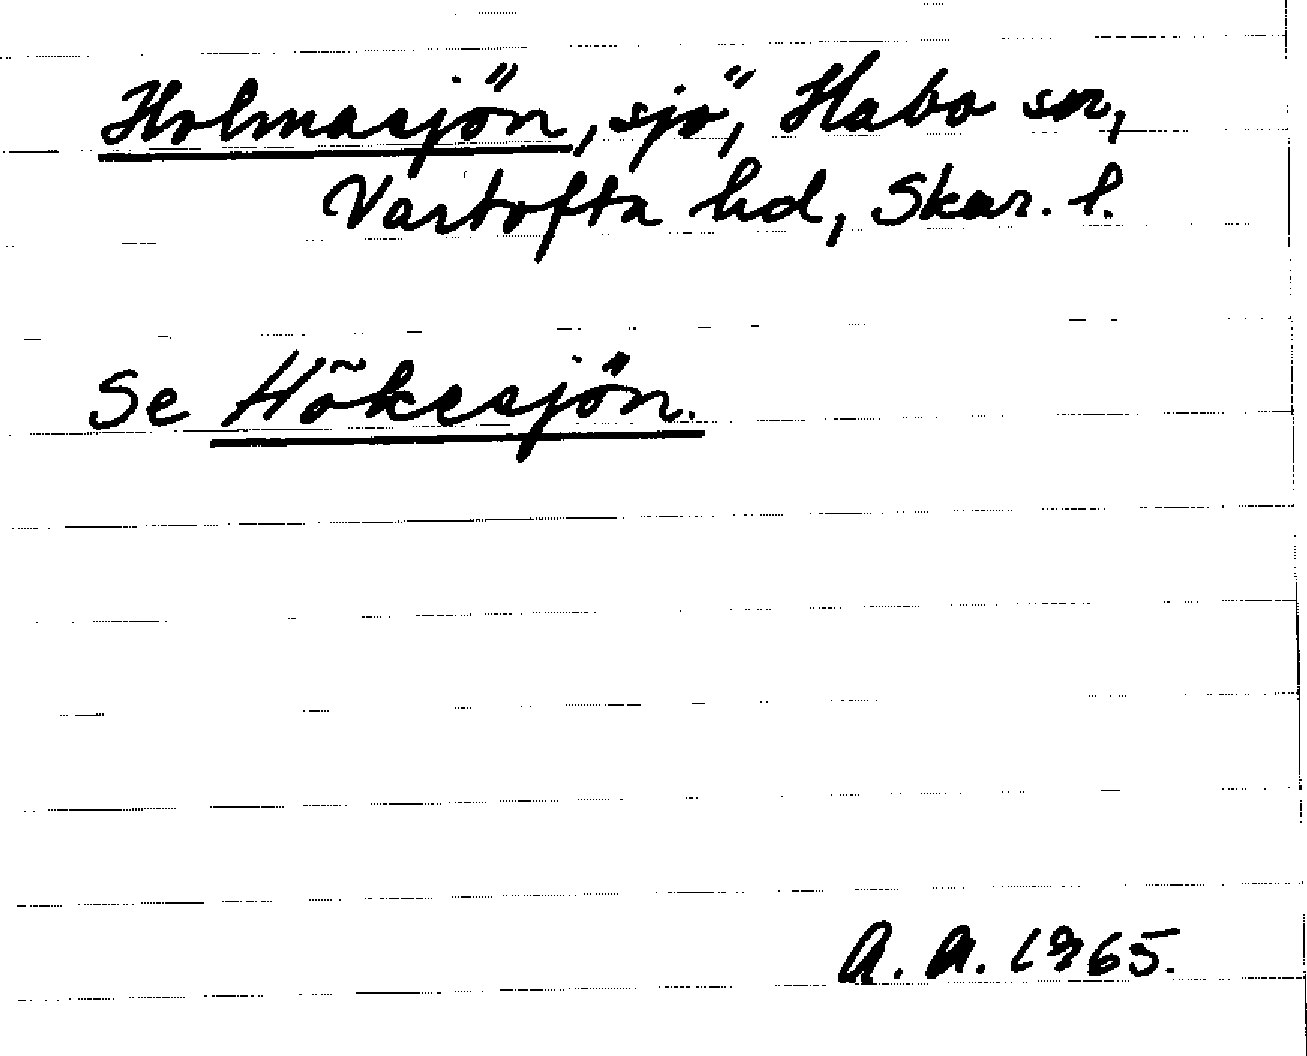 Holmasjön, sjö, Habo sn,
Vartofta hd, Skar. l.
Se Hökesjön.
A. A. 1965.